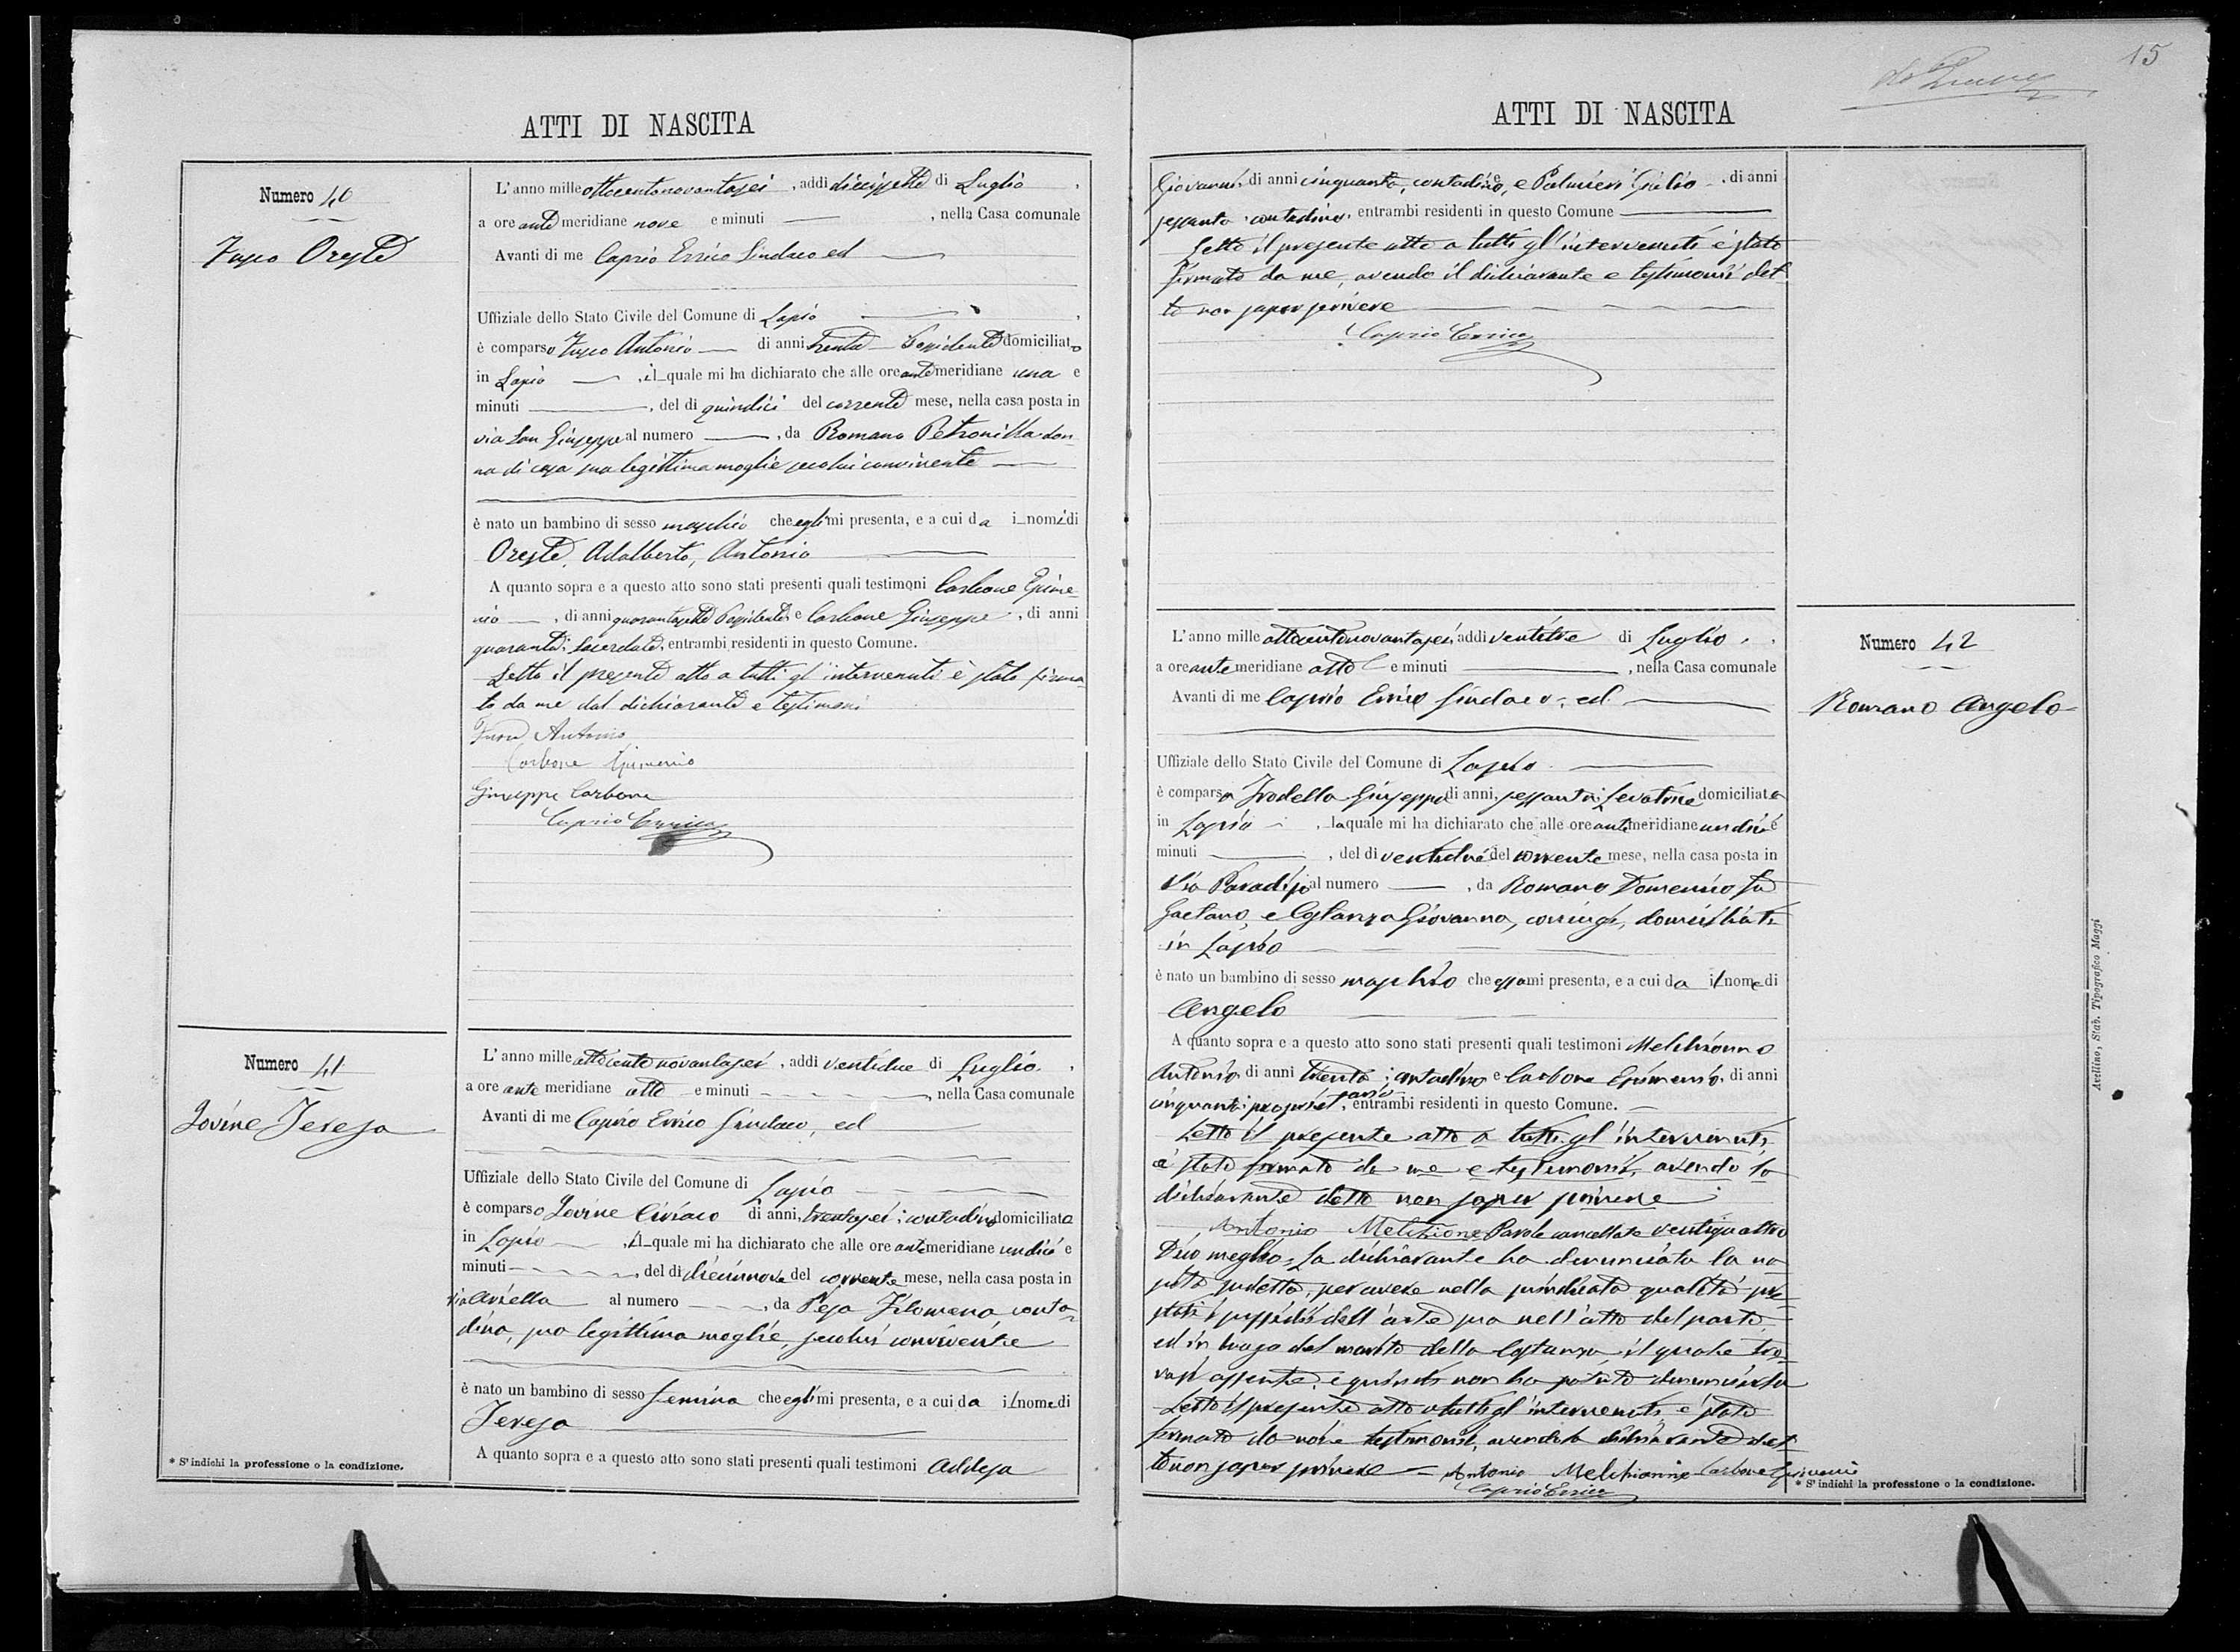 ATTI DI NASCITA
Numero 40
Fusco Oreste
L'anno mille ottocentonovantasei, addi diecisette di Luglio,
a ore ante meridiane nove e minuti — , nella Casa comunale
Avanti di me Caprio Errico Sindaco ed
Uffiziale dello Stato Civile del Comune di Lapio
è comparso Fusco Antonio — di anni trenta Possidente domiciliato
in Lapio — , il quale mi ha dichiarato che alle ore ante meridiane una e
minuti — , del di quindici del corrente mese, nella casa posta in
via San Giuseppe al numero — , da Romano Petronilla don-
na di casa sua legittima moglie secolui convivente —
è nato un bambino di sesso maschio che egli mi presenta, e a cui da i nomi di
Oreste, Adalberto, Antonio
A quanto sopra e a questo atto sono stati presenti quali testimoni Carbone Epime-
nio — , di anni quarantasette Possidente e Carbone Giuseppe, di anni
quaranta, Sacerdote, entrambi residenti in questo Comune.
Letto il presente atto a tutti gl'intervenuti è stato firma-
to da me dal dichiarante e testimoni
Fusco Antonio
Carbone Epimenio
Giuseppe Carbone
Caprio Errico
Numero 41
Iovine Teresa
L'anno mille ottocentonovantasei, addi ventidue di Luglio,
a ore ante meridiane otto e minuti — , nella Casa comunale
Avanti di me Caprio Errico Sindaco, ed
Uffiziale dello Stato Civile del Comune di Lapio
è comparso Iovine Ciriaco di anni trentasei; contadino domiciliato
in Lapio — , il quale mi ha dichiarato che alle ore ante meridiane undici e
minuti — , del di diecinnove del corrente mese, nella casa posta in
via Ariella al numero — , da Pesa Filomena conta-
dina, sua legittima moglie, secolui convivente
è nato un bambino di sesso femina che egli mi presenta, e a cui da il nome di
Teresa
A quanto sopra e a questo atto sono stati presenti quali testimoni Addesa
* S'indichi la professione o la condizione.
15
ATTI DI NASCITA
Giovanni, di anni cinquanta, contadino, e Palmieri Giulio, di anni
sessanta, contadino, entrambi residenti in questo Comune —
Letto il presente atto a tutti gl'intervenuti è stato
firmato da me, avendo il dichiarante e testimonii det-
to non saper scrivere
Caprio Errico
Numero 42
Romano Angelo
L'anno mille ottocentonovantasei, addi ventitre di Luglio,
a ore ante meridiane otto e minuti — , nella Casa comunale
Avanti di me Caprio Errico Sindaco, ed
Uffiziale dello Stato Civile del Comune di Lapio
è comparsa Trodella Giuseppa di anni sessanta; Levatrice domiciliata
in Lapio — , la quale mi ha dichiarato che alle ore ante meridiane undici e
minuti — , del di ventidue del corrente mese, nella casa posta in
Via Paradiso al numero — , da Romano Domenico fu
Gaetano, e Costanza Giovanna, coniugi, domiciliati
in Lapio
è nato un bambino di sesso maschio che essa mi presenta, e a cui da il nome di
Angelo
A quanto sopra e a questo atto sono stati presenti quali testimoni Melchionno
Antonio di anni trenta; contadino e Carbone Epimenio, di anni
cinquanta; proprietario, entrambi residenti in questo Comune.
Letto il presente atto a tutti gl'intervenuti
è stato firmato da me e testimonii, avendo la
dichiarante detto non saper scrivere
Antonio Melchionne Parole cancellate ventiquattro
Dico meglio, La dichiarante ha denunciata la na-
scita sudetta, per avere nella sumdicata qualità pre-
stati i sussidii dell'arte sua nell'atto del parto,
ed in luogo del marito della Costanza, il quale tro-
vasi assente, e quindi non ha potuto denunciarla
Letto il presente atto a tutti gl'intervenuti, è stato
firmato da noi e testimonii, avendo la dichiarante det-
to non saper scrivere — Antonio Melchionne Carbone Epimenio
Caprio Errico
* S'indichi la professione o la condizione.
Avellino, Stab. Tipografico Maggi